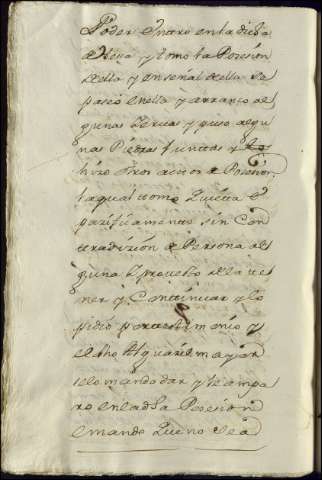 Poder entro en la dicha
dehesa y tomo la Posesion
della y en señal della se
paseo en ella y arranco al
gunas Yervas y puso algu
nas Piedras juntas y
hizo otros actos de Posesion
la qual tomo Quieta e
pazificamente sin Con
tradizion de Persona al
guna e protesto de la te
ner y Continuar y lo
pidio por testimonio y
el dho Alguazil mayor
se lo mando dar y le ampa
ro en la dha Posesion
e mando Que no sea